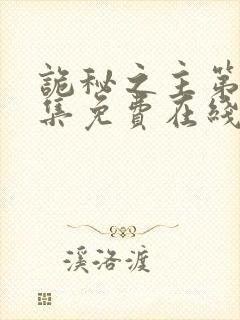 詭秘之主第
集免費在綫
溪洛渡